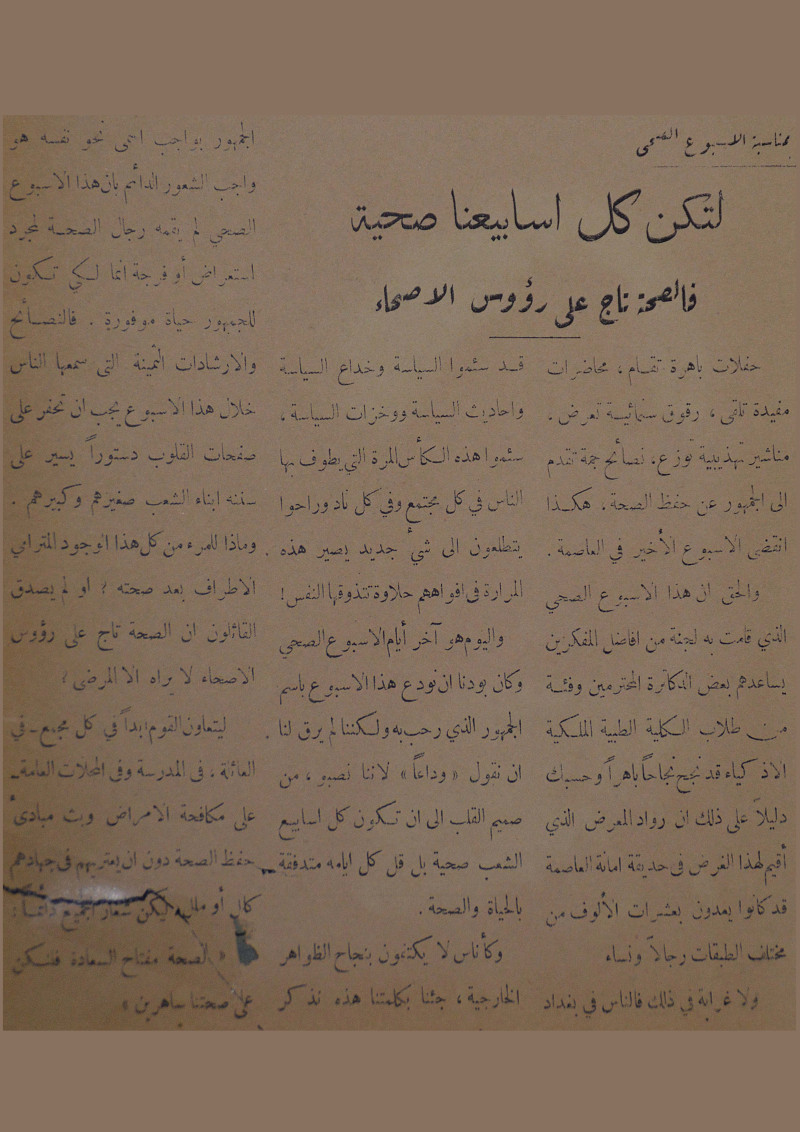 بمناسبة الاسبوع الصحى
لتكن كل اسابيعنا صحية
فالصحة تاج على رؤوس الاصحاء
حفلات باهرة تقام ، محاضرات
مفيدة تلقى ، رقوق سنمائية تعرض ،
مناشير تهذيبية توزع ، نصائح جمة تقدم
الى الجمهور عن حفظ الصحة ، هكذا
انقضى الاسبوع الأخير في العاصمة .
والحق ان هذا الاسبوع الصحي
الذي قامت به لجنة من افاضل المفكرين
يساعدهم بعض الدكاترة المحترمين وفئة
من طلاب الكلية الطبية الملكية
الاذكياء قد نجح نجاحاً باهراً وحسبك
دليلاً على ذلك ان رواد المعرض الذي
أقيم لهذا الغرض في حديقة امانة العاصمة
قد كانوا يعدون بعشرات الألوف من
مختلف الطبقات رجالاً ونساء
ولا غرابة في ذلك فالناس في بغداد
قد سئموا السياسة وخداع السياسة
واحاديث السياسة ووخزات السياسة ،
سئموا هذه الكأس المرة التي يطوف بها
الناس في كل مجتمع وفي كل ناد وراحوا
يتطلعون الى شيء جديد يصير هذه
المرارة في افواههم حلاوة تتذوقها النفس !
واليوم هو آخر أيام الاسبوع الصحي
وكان بودنا ان نودع هذا الاسبوع باسم
الجمهور الذي رحب به ولكننا لم يرق لنا
ان نقول « وداعاً » لاننا نصبو ، من
صميم القلب الى ان تكون كل اسابيع
الشعب صحية بل قل كل ايامه متدفقة
بالحياة والصحة .
وكأناس لا يكتفون بنجاح الظواهر
الخارجية ، جئنا بكلمتنا هذه نذكر
الجمهور بواجب اسمى نحو نفسه هو
واجب الشعور الدائم بان هذا الاسبوع
الصحي لم يقمه رجال الصحة لمجرد
استعراض أو فرجة انما لكي تكون
للجمهور حياة موفورة . فالنصائح
والارشادات الثمينة التي سمعها الناس
خلال هذا الاسبوع يجب ان تحفر على
صفحات القلوب دستوراً يسير على
سننه ابناء الشعب صغيرهم وكبيرهم .
وماذا للمرء من كل هذا الوجود المترامي
الاطراف بعد صحته ؟ او لم يصدق
القائلون ان الصحة تاج على رؤوس
الاصحاء لا يراه الا المرضى ؟
ليتعاون القوم ابداً في كل مجتمع ـ في
العائلة ، في المدرسة وفى المحلات العامة ـ
على مكافحة الامراض وبث مبادئ
حفظ الصحة دون ان يعتريهم في جهادهم
كلل أو ملل وليكن شعار الجميع دائماً :
« الصحة مفتاح السعادة فلنكن
على صحتنا ساهرين »